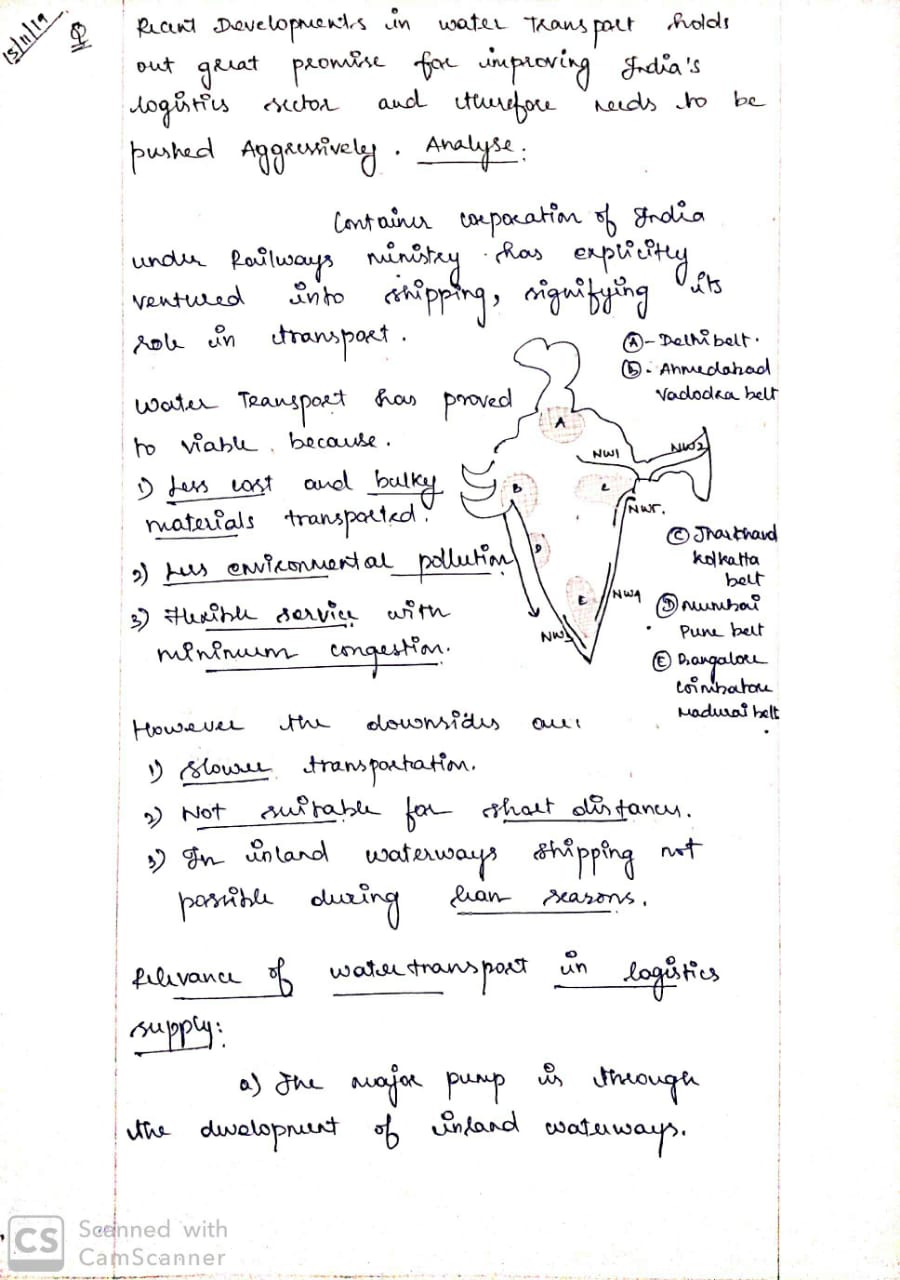 15/11/19
Q
Recent Developments in water Transport holds
out great promise for improving India's
logistics sector and therefore needs to be
pushed Aggressively. Analyse:
Container corporation of India
under Railways ministry has explicitly
ventured into shipping, signifying its
role in transport.
Water Transport has proved
to viable because.
1) Less cost and bulky
materials transported.
2) Less environmental pollution
3) Flexible service with
minimum congestion.
A - Delhi belt.
B - Ahmedabad
Vadodra belt
A
NW1
NW2
B
C
NW5.
D
E
NW4
NW3
C Jharkhand
Kolkatta
belt
D Mumbai
Pune belt
E Bangalore
Coimbatore
Madurai belt
However the downsides are:
1) Slower transportation.
2) Not suitable for short distances.
3) In inland waterways shipping not
possible during lean seasons.
Relevance of water transport in logistics
supply:
a) The major pump is through
the development of inland waterways.
CS
Scanned with
CamScanner